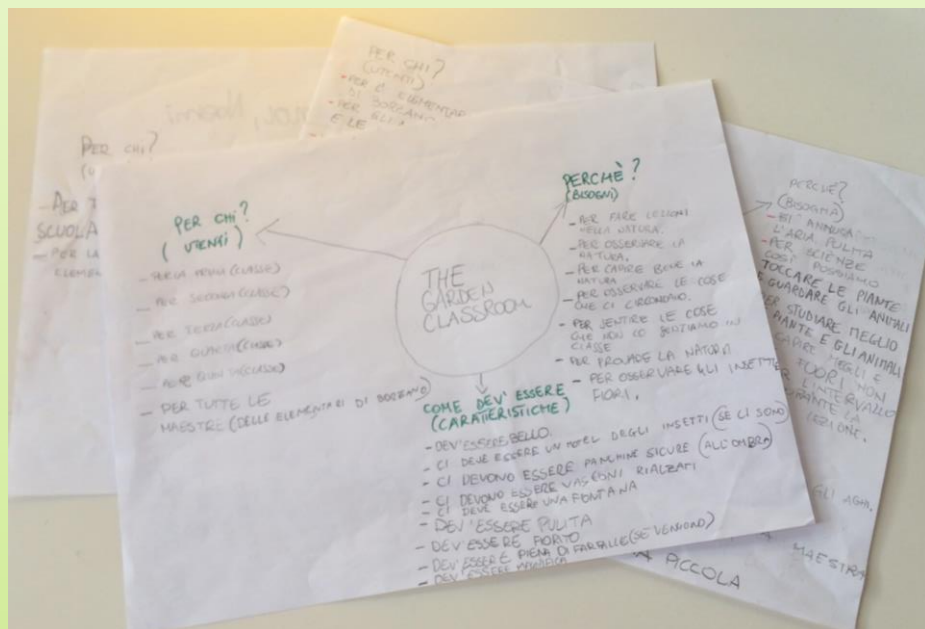 PER CHI?
(UTENTI)
- PER LA PRIMA (CLASSE)
- PER SECONDA (CLASSE)
- PER TERZA (CLASSE)
- PER QUARTA (CLASSE)
- PER QUINTA (CLASSE)
- PER TUTTE LE
MAESTRE (DELLE ELEMENTARI DI BORZANO)
THE
GARDEN
CLASSROOM
PERCHÈ?
(BISOGNI)
- PER FARE LEZIONI
NELLA NATURA.
- PER OSSERVARE LA
NATURA.
- PER CAPIRE BENE LA
NATURA
- PER OSSERVARE LE COSE
CHE CI CIRCONDANO.
- PER SENTIRE LE COSE
CHE NON SENTIAMO IN
CLASSE
- PER PROVARE LA NATURA
- PER OSSERVARE GLI INSETTI E
FIORI.
COME DEV'ESSERE
(CARATTERISTICHE)
- DEV'ESSERE BELLO.
- CI DEVE ESSERE UN HOTEL DEGLI INSETTI (SE CI SONO)
- CI DEVONO ESSERE PANCHINE SICURE (ALL'OMBRA)
- CI DEVONO ESSERE VASCONI RIALZATI
- CI DEVE ESSERE UNA FONTANA
- DEV'ESSERE PULITA
- DEV'ESSERE FIORITO
- DEV'ESSERE PIENA DI FARFALLE (SE VENGONO)
- DEV'ESSERE
PER CHI?
(UTENTI)
- PER L'ELEMENTAR
DI BORZANO
- PER GLI
E LE
PER CHI?
- PER T
SCUOLA
- PER LA
ELEMEN
PERCHÈ?
(BISOGNI)
L'ARIA PULITA
- PER SCIENZE
COSÌ POSSIAMO
TOCCARE LE PIANTE
GUARDARE GLI ANIMALI
PER STUDIARE MEGLIO
PIANTE E GLI ANIMALI
CAPIRE MEGLI E
FUORI NON
L'INTERVALLO
DURANTE LA
LEZIONE.
MAESTRA
ACCOLA